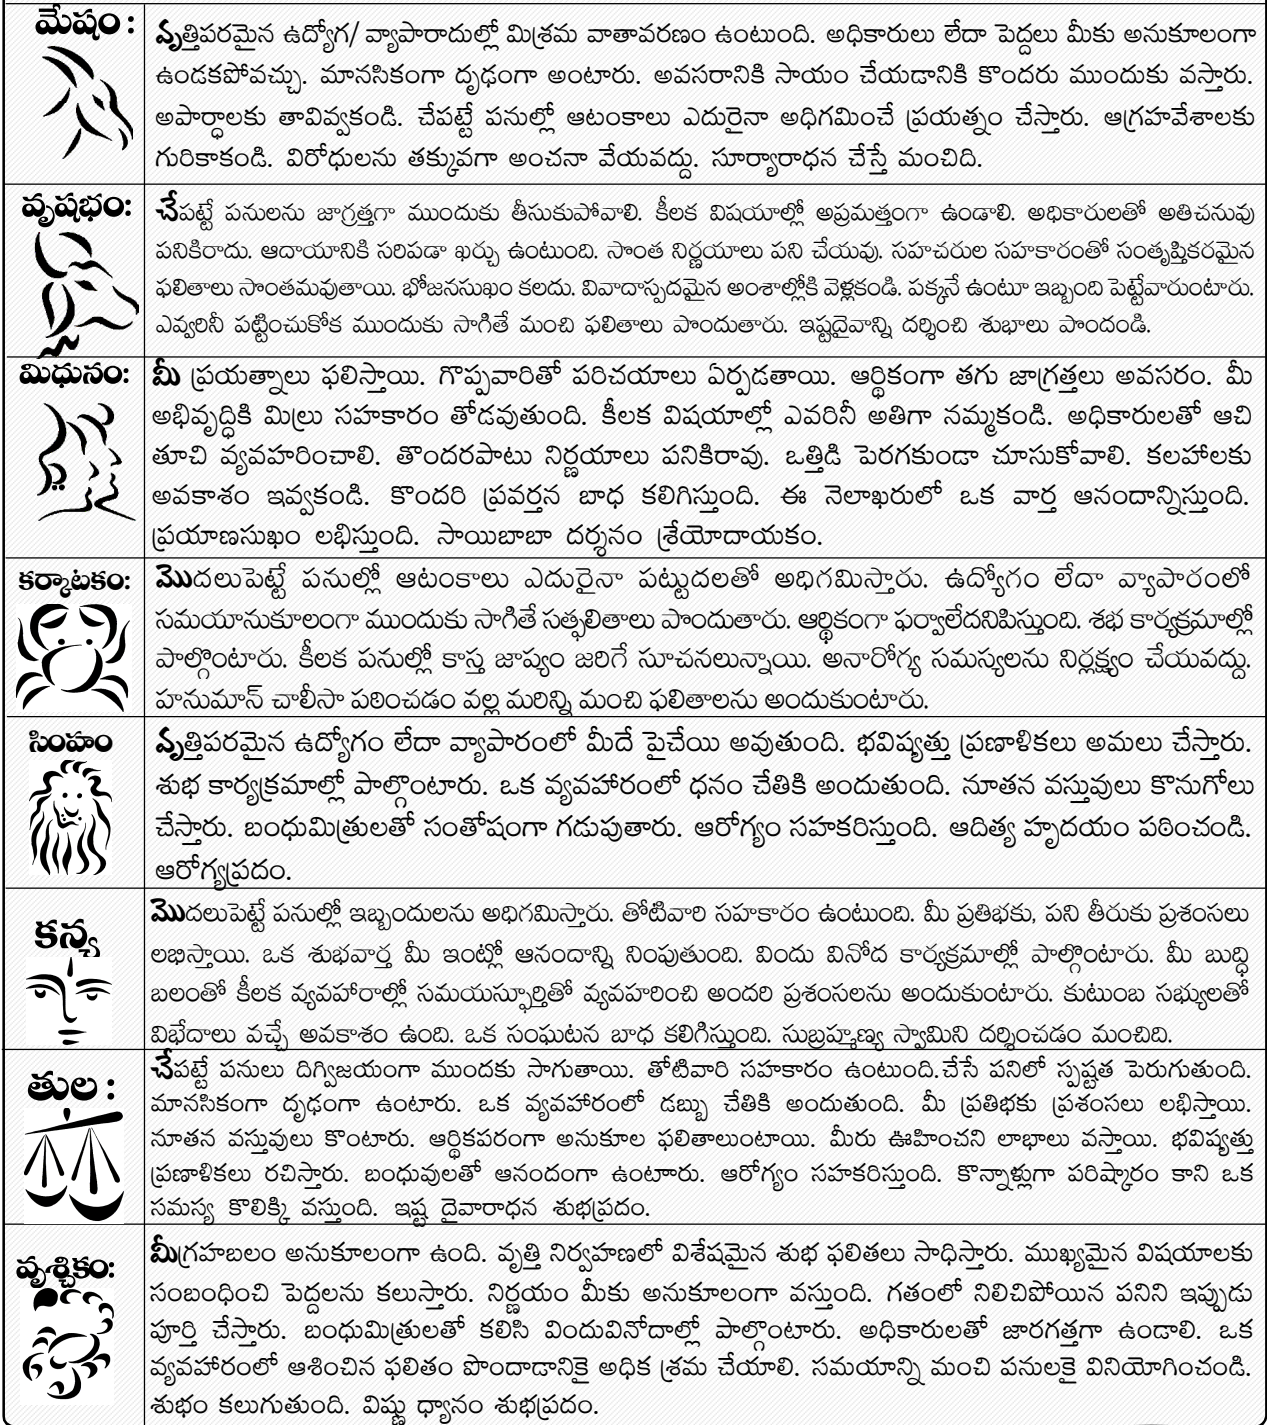 మేషం:
వృత్తిపరమైన ఉద్యోగ/ వ్యాపారాదుల్లో మిశ్రమ వాతావరణం ఉంటుంది. అధికారులు లేదా పెద్దలు మీకు అనుకూలంగా
ఉండకపోవచ్చు. మానసికంగా దృఢంగా అంటారు. అవసరానికి సాయం చేయడానికి కొందరు ముందుకు వస్తారు.
అపార్ధాలకు తావివ్వకండి. చేపట్టే పనుల్లో ఆటంకాలు ఎదురైనా అధిగమించే ప్రయత్నం చేస్తారు. ఆగ్రహవేశాలకు
గురికాకండి. విరోధులను తక్కువగా అంచనా వేయవద్దు. సూర్యారాధన చేస్తే మంచిది.
వృషభం:
చేపట్టే పనులను జాగ్రత్తగా ముందుకు తీసుకుపోవాలి. కీలక విషయాల్లో అప్రమత్తంగా ఉండాలి. అధికారులతో అతిచనువు
పనికిరాదు. ఆదాయానికి సరిపడా ఖర్చు ఉంటుంది. సొంత నిర్ణయాలు పని చేయవు. సహచరుల సహకారంతో సంతృప్తికరమైన
ఫలితాలు సొంతమవుతాయి. భోజనసుఖం కలదు. వివాదాస్పదమైన అంశాల్లోకి వెళ్లకండి. పక్కనే ఉంటూ ఇబ్బంది పెట్టేవారుంటారు.
ఎవ్వరినీ పట్టించుకోక ముందుకు సాగితే మంచి ఫలితాలు పొందుతారు. ఇష్టదైవాన్ని దర్శించి శుభాలు పొందండి.
మిధునం:
మీ ప్రయత్నాలు ఫలిస్తాయి. గొప్పవారితో పరిచయాలు ఏర్పడతాయి. ఆర్థికంగా తగు జాగ్రత్తలు అవసరం. మీ
అభివృద్ధికి మిత్రు సహకారం తోడవుతుంది. కీలక విషయాల్లో ఎవరినీ అతిగా నమ్మకండి. అధికారులతో ఆచి
తూచి వ్యవహరించాలి. తొందరపాటు నిర్ణయాలు పనికిరావు. ఒత్తిడి పెరగకుండా చూసుకోవాలి. కలహాలకు
అవకాశం ఇవ్వకండి. కొందరి ప్రవర్తన బాధ కలిగిస్తుంది. ఈ నెలాఖరులో ఒక వార్త ఆనందాన్నిస్తుంది.
ప్రయాణసుఖం లభిస్తుంది. సాయిబాబా దర్శనం శ్రేయోదాయకం.
కర్కాటకం:
మొదలుపెట్టే పనుల్లో ఆటంకాలు ఎదురైనా పట్టుదలతో అధిగమిస్తారు. ఉద్యోగం లేదా వ్యాపారంలో
సమయానుకూలంగా ముందుకు సాగితే సత్ఫలితాలు పొందుతారు. ఆర్థికంగా ఫర్వాలేదనిపిస్తుంది. శభ కార్యక్రమాల్లో
పాల్గొంటారు. కీలక పనుల్లో కాస్త జాప్యం జరిగే సూచనలున్నాయి. అనారోగ్య సమస్యలను నిర్లక్ష్యం చేయవద్దు.
హనుమాన్ చాలీసా పఠించడం వల్ల మరిన్ని మంచి ఫలితాలను అందుకుంటారు.
సింహం
వృత్తిపరమైన ఉద్యోగం లేదా వ్యాపారంలో మీదే పైచేయి అవుతుంది. భవిష్యత్తు ప్రణాళికలు అమలు చేస్తారు.
శుభ కార్యక్రమాల్లో పాల్గొంటారు. ఒక వ్యవహారంలో ధనం చేతికి అందుతుంది. నూతన వస్తువులు కొనుగోలు
చేస్తారు. బంధుమిత్రులతో సంతోషంగా గడుపుతారు. ఆరోగ్యం సహకరిస్తుంది. ఆదిత్య హృదయం పఠించండి.
ఆరోగ్యప్రదం.
కన్య
మొదలుపెట్టే పనుల్లో ఇబ్బందులను అధిగమిస్తారు. తోటివారి సహకారం ఉంటుంది. మీ ప్రతిభకు, పని తీరుకు ప్రశంసలు
లభిస్తాయి. ఒక శుభవార్త మీ ఇంట్లో ఆనందాన్ని నింపుతుంది. విందు వినోద కార్యక్రమాల్లో పాల్గొంటారు. మీ బుద్ధి
బలంతో కీలక వ్యవహారాల్లో సమయస్ఫూర్తితో వ్యవహరించి అందరి ప్రశంసలను అందుకుంటారు. కుటుంబ సభ్యులతో
విభేదాలు వచ్చే అవకాశం ఉంది. ఒక సంఘటన బాధ కలిగిస్తుంది. సుబ్రహ్మణ్య స్వామిని దర్శించడం మంచిది.
తుల :
చేపట్టే పనులు దిగ్విజయంగా ముందకు సాగుతాయి. తోటివారి సహకారం ఉంటుంది.చేసే పనిలో స్పష్టత పెరుగుతుంది.
మానసికంగా దృఢంగా ఉంటారు. ఒక వ్యవహారంలో డబ్బు చేతికి అందుతుంది. మీ ప్రతిభకు ప్రశంసలు లభిస్తాయి.
నూతన వస్తువులు కొంటారు. ఆర్థికపరంగా అనుకూల ఫలితాలుంటాయి. మీరు ఊహించని లాభాలు వస్తాయి. భవిష్యత్తు
ప్రణాళికలు రచిస్తారు. బంధువులతో ఆనందంగా ఉంటాారు. ఆరోగ్యం సహకరిస్తుంది. కొన్నాళ్లుగా పరిష్కారం కాని ఒక
సమస్య కొలిక్కి వస్తుంది. ఇష్ట దైవారాధన శుభప్రదం.
వృశ్చికం:
మీగ్రహబలం అనుకూలంగా ఉంది. వృత్తి నిర్వహణలో విశేషమైన శుభ ఫలితలు సాధిస్తారు. ముఖ్యమైన విషయాలకు
సంబంధించి పెద్దలను కలుస్తారు. నిర్ణయం మీకు అనుకూలంగా వస్తుంది. గతంలో నిలిచిపోయిన పనిని ఇప్పుడు
పూర్తి చేస్తారు. బంధుమిత్రులతో కలిసి విందువినోదాల్లో పాల్గొంటారు. అధికారులతో జారగత్తగా ఉండాలి. ఒక
వ్యవహారంలో ఆశించిన ఫలితం పొందాడానికై అధిక శ్రమ చేయాలి. సమయాన్ని మంచి పనులకై వినియోగించండి.
శుభం కలుగుతుంది. విష్ణు ధ్యానం శుభప్రదం.